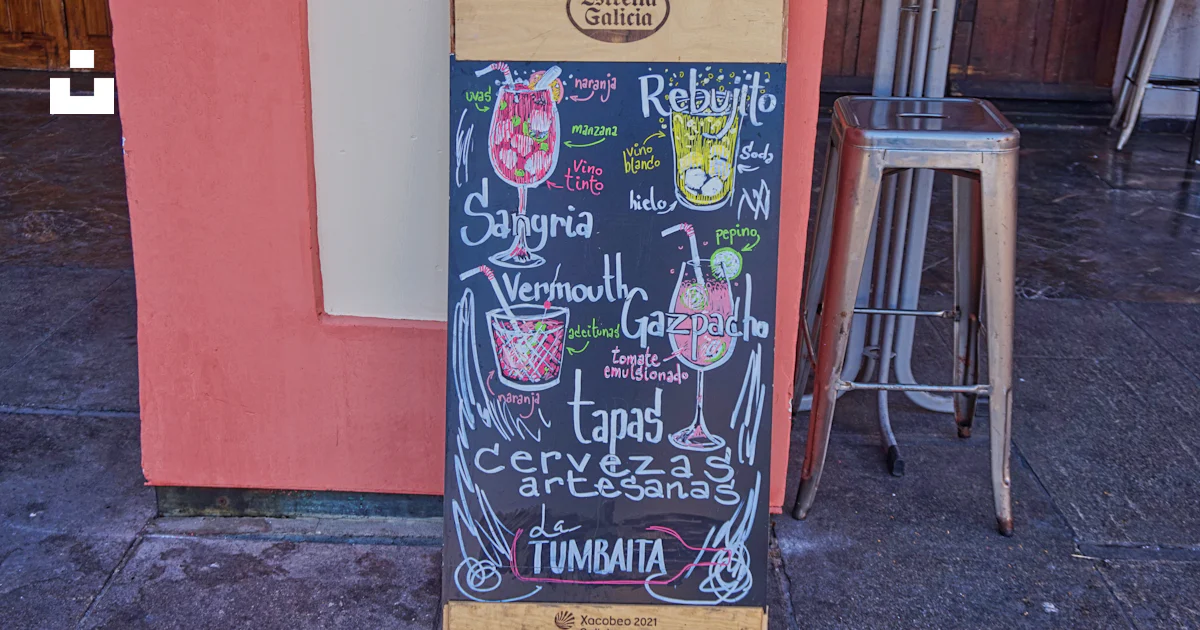 Estrella
Galicia
uvas
naranja
manzana
Vino
tinto
Sangria
Rebujito
vino
blando
Soda
hielo
Vermouth
aceitunas
naranja
pepino
Gazpacho
tomate
emulsionado
tapas
cervezas
artesanas
La
TUMBAITA
Xacobeo 2021